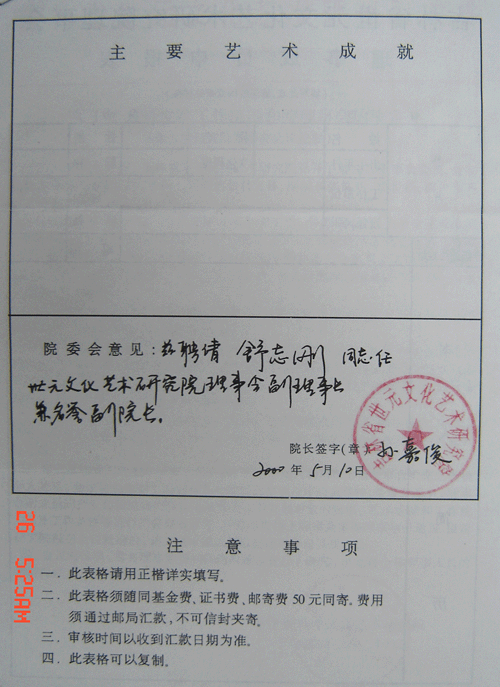 主要艺术成就
院委会意见：兹聘请 舒志刚 同志任
世元文化艺术研究院理事会副理事长
兼名誉副院长。
省世元文化艺术研究院
院长签字(章) 孙嘉俊
2000年5月10日
注意事项
一．此表格请用正楷详实填写。
二．此表格须随同基金费、证书费、邮寄费50元同寄。费用
须通过邮局汇款，不可信封夹寄。
三．审核时间以收到汇款日期为准。
四．此表格可以复制。
26 5:25AM